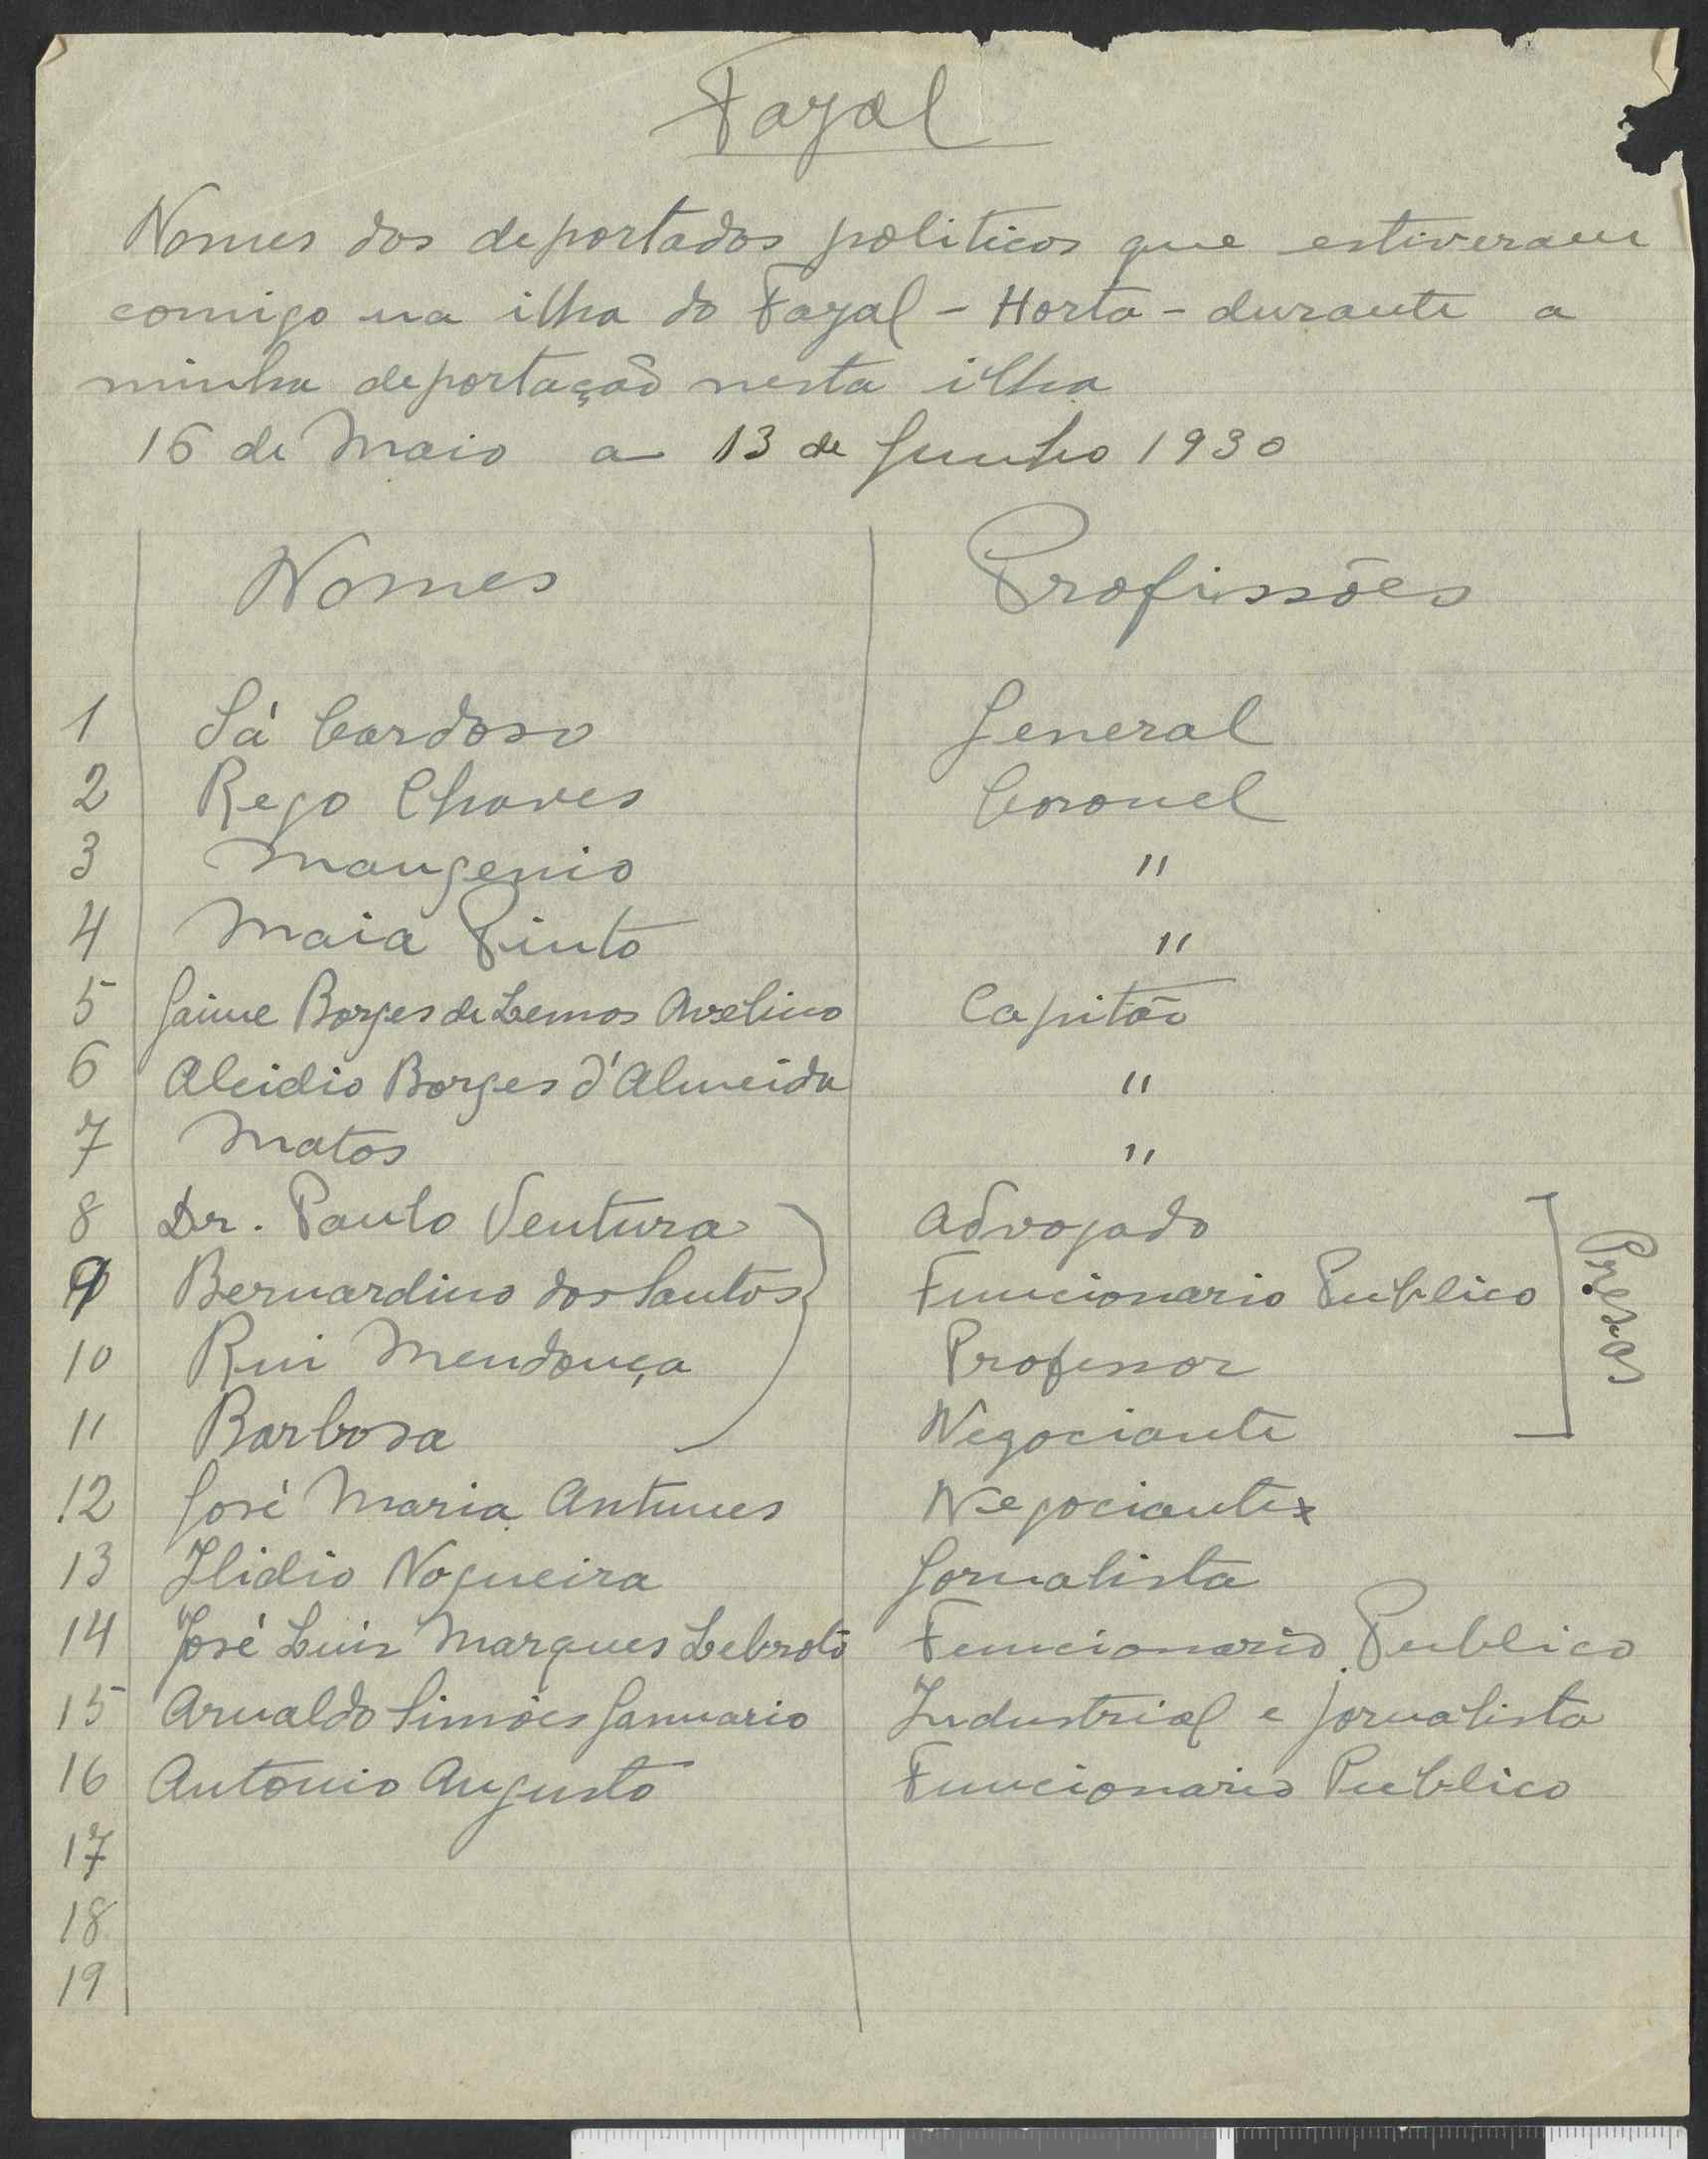 Fayal
Nomes dos deportados politicos que estiveram
comigo na ilha do Fayal - Horta - durante a
minha deportação nesta ilha
16 de Maio a 13 de Junho 1930
Nomes Profissões
1 Sá Cardoso General
2 Rego Chaves Coronel
3 Maugenio "
4 Maia Pinto "
5 Jaime Borges de Lemos Avelino Capitão
6 Alcidio Borges d'Almeida "
7 Matos "
8 Dr. Paulo Ventura Advogado
9 Bernardino dos Santos Funcionario Publico
10 Rui Mendonça Professor
11 Barbosa Negociante
Presos
12 José Maria Antunes Negociante
13 Ilidio Nogueira Jornalista
14 José Luis Marques Lebroto Funcionario Publico
15 Arnaldo Simões Januario Industrial e jornalista
16 Antonio Augusto Funcionario Publico
17
18
19